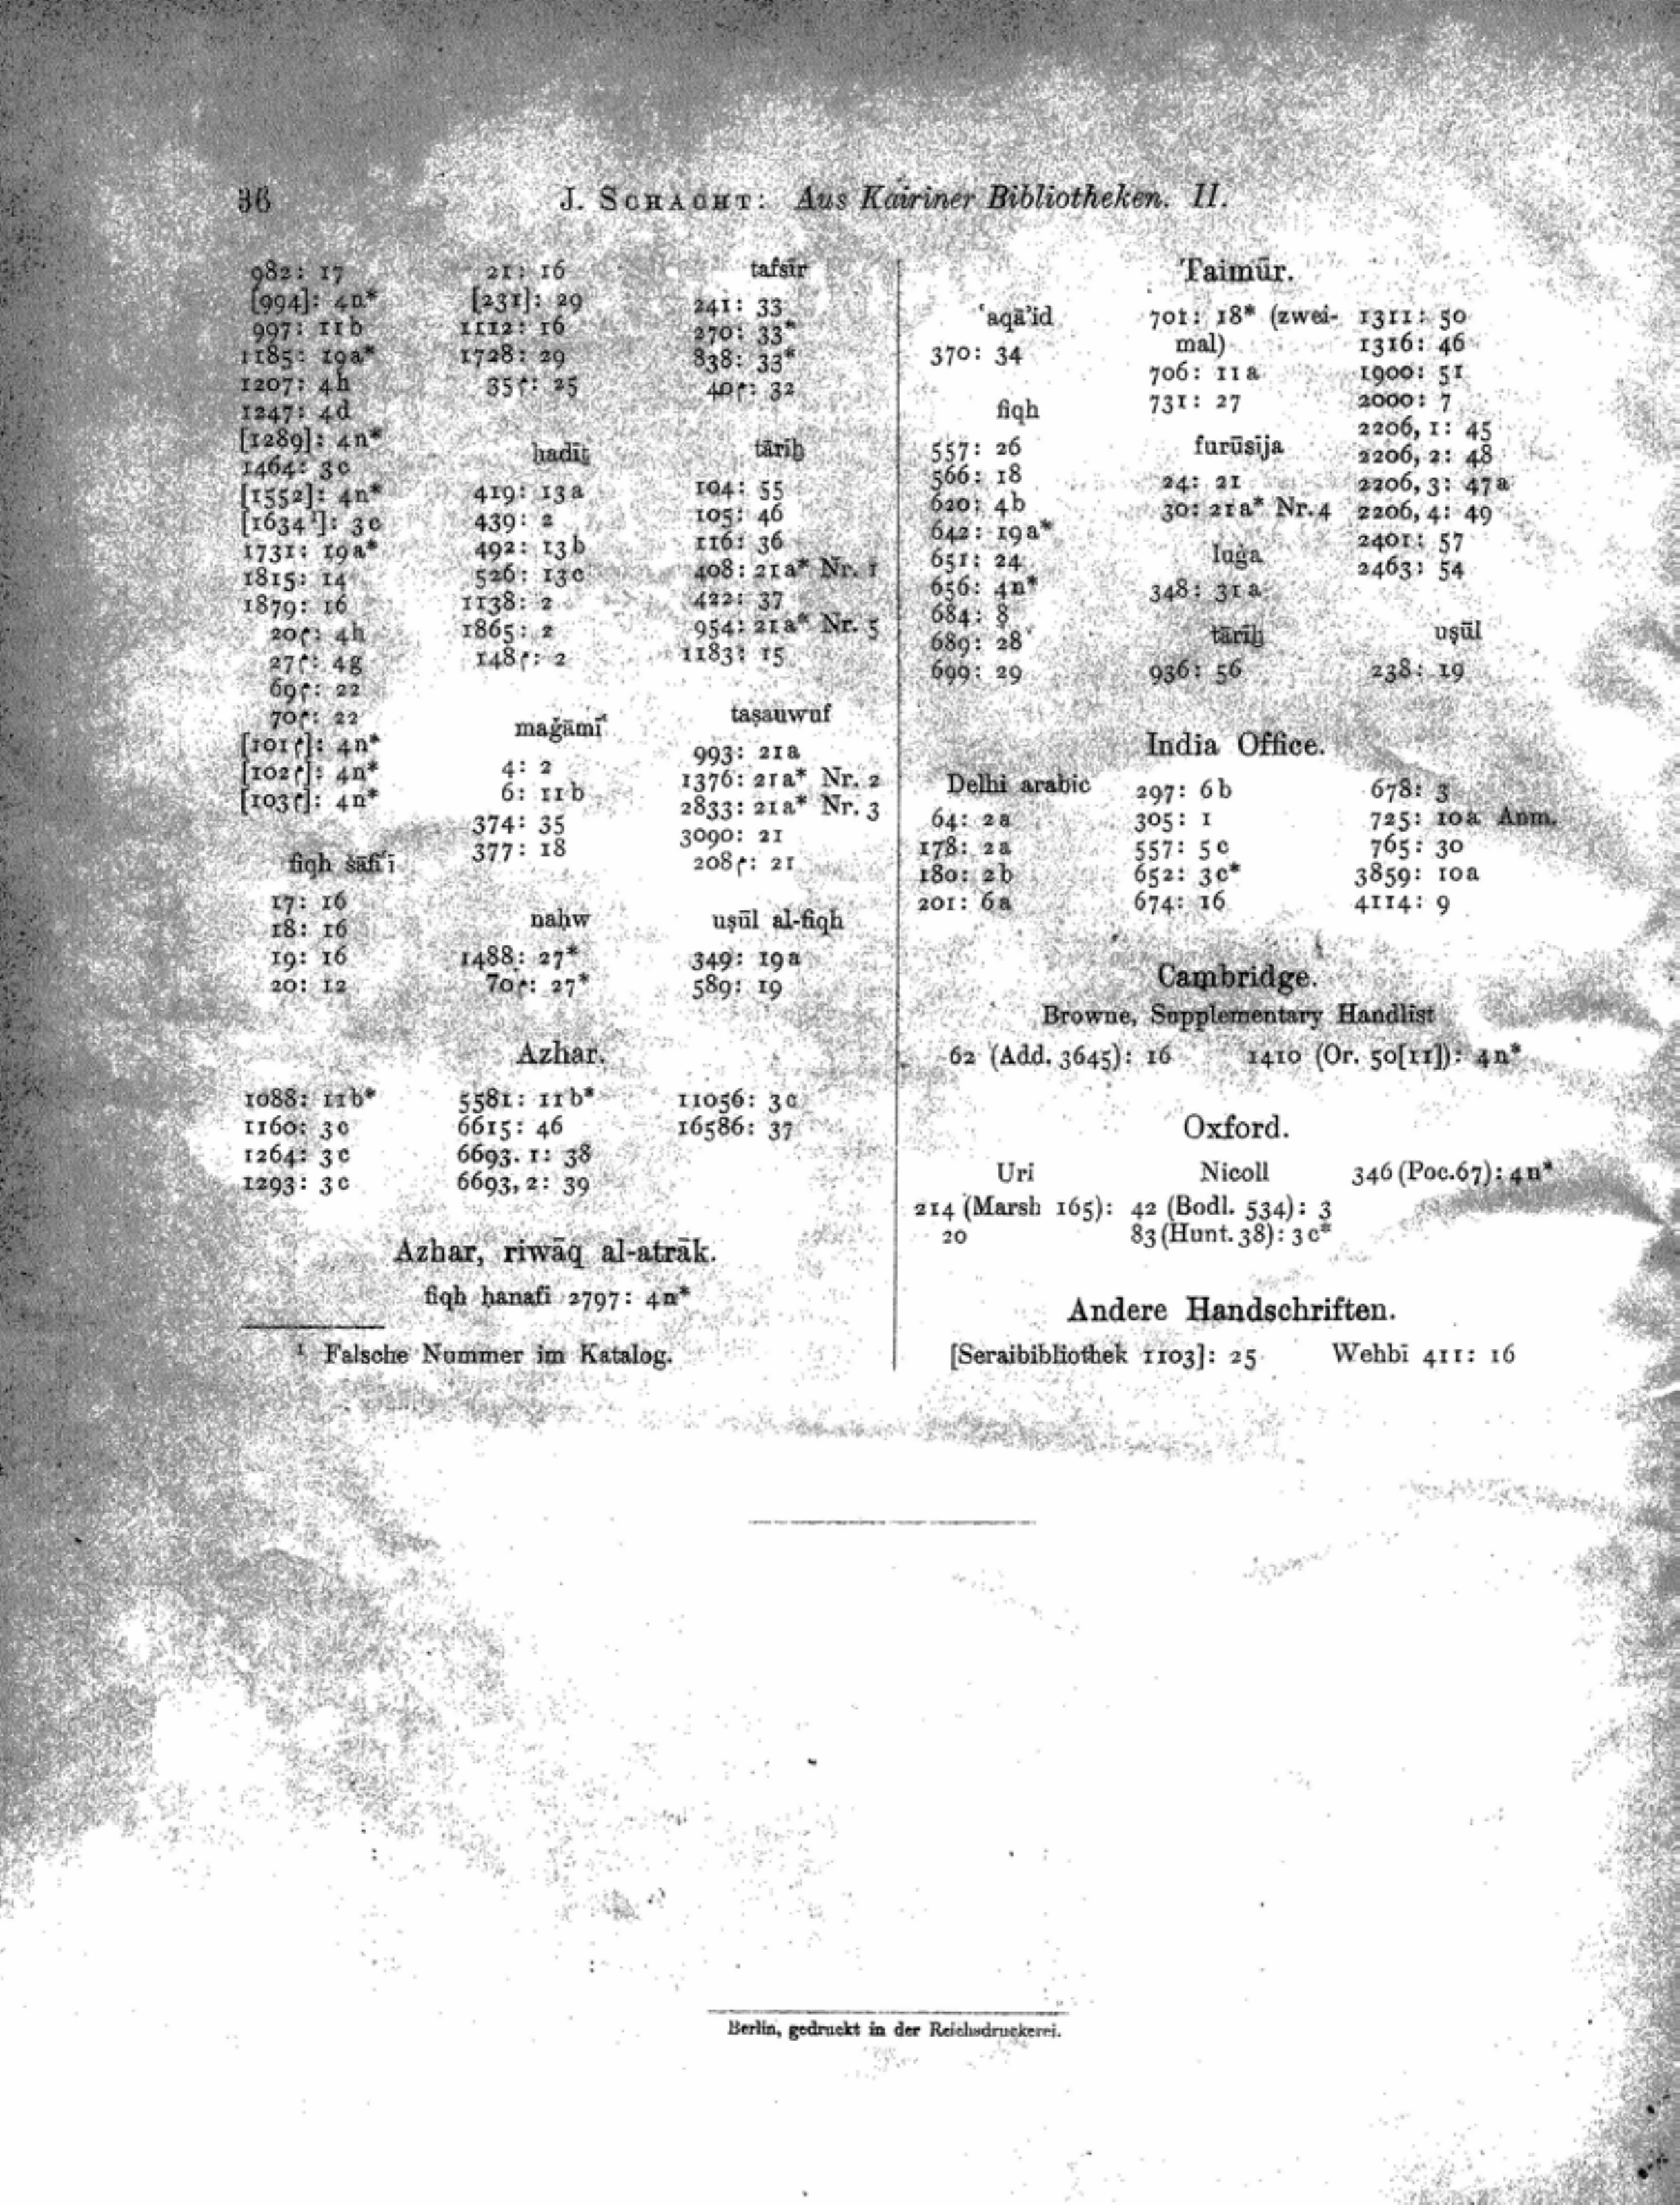 36
J. SCHACHT: Aus Kairiner Bibliotheken. II.
982: 17
[994]: 4n*
997: 11b
1185: 19a*
1207: 4h
1247: 4d
[1289]: 4n*
1464: 3c
[1552]: 4n*
[1634¹]: 3c
1731: 19a*
1815: 14
1879: 16
20م: 4h
27م: 4g
69م: 22
70م: 22
[101م]: 4n*
[102م]: 4n*
[103م]: 4n*
fiqh šāfiʿī
17: 16
18: 16
19: 16
20: 12
21: 16
[231]: 29
1112: 16
1728: 29
35م: 25
ḥadīṯ
419: 13a
439: 2
492: 13b
526: 13c
1138: 2
1865: 2
148م: 2
maǧāmīʿ
4: 2
6: 11b
374: 35
377: 18
naḥw
1488: 27*
70م: 27*
tafsīr
241: 33
270: 33*
838: 33*
40م: 32
tārīḫ
104: 55
105: 46
116: 36
408: 21a* Nr. 1
422: 37
954: 21a* Nr. 5
1183: 15
taṣauwuf
993: 21a
1376: 21a* Nr. 2
2833: 21a* Nr. 3
3090: 21
208م: 21
uṣūl al-fiqh
349: 19a
589: 19
Azhar.
1088: 11b*
1160: 3c
1264: 3c
1293: 3c
5581: 11b*
6615: 46
6693. 1: 38
6693, 2: 39
11056: 3c
16586: 37
Azhar, riwāq al-atrāk.
fiqh ḥanafī 2797: 4n*
¹ Falsche Nummer im Katalog.
Taimūr.
ʿaqāʾid
370: 34
fiqh
557: 26
566: 18
620: 4b
642: 19a*
651: 24
656: 4n*
684: 8
689: 28
699: 29
701: 18* (zwei-
mal)
706: 11a
731: 27
furūsija
24: 21
30: 21a* Nr. 4
luġa
348: 31a
tārīḫ
936: 56
1311: 50
1316: 46
1900: 51
2000: 7
2206, 1: 45
2206, 2: 48
2206, 3: 47a
2206, 4: 49
2401: 57
2463: 54
uṣūl
238: 19
India Office.
Delhi arabic
64: 2a
178: 2a
180: 2b
201: 6a
297: 6b
305: 1
557: 5c
652: 3c*
674: 16
678: 3
725: 10a Anm.
765: 30
3859: 10a
4114: 9
Cambridge.
Browne, Supplementary Handlist
62 (Add. 3645): 16 1410 (Or. 50[11]): 4n*
Oxford.
Uri
214 (Marsh 165):
20
Nicoll
42 (Bodl. 534): 3
83 (Hunt. 38): 3c*
346 (Poc. 67): 4n*
Andere Handschriften.
[Seraibibliothek 1103]: 25 Wehbī 411: 16
Berlin, gedruckt in der Reichsdruckerei.